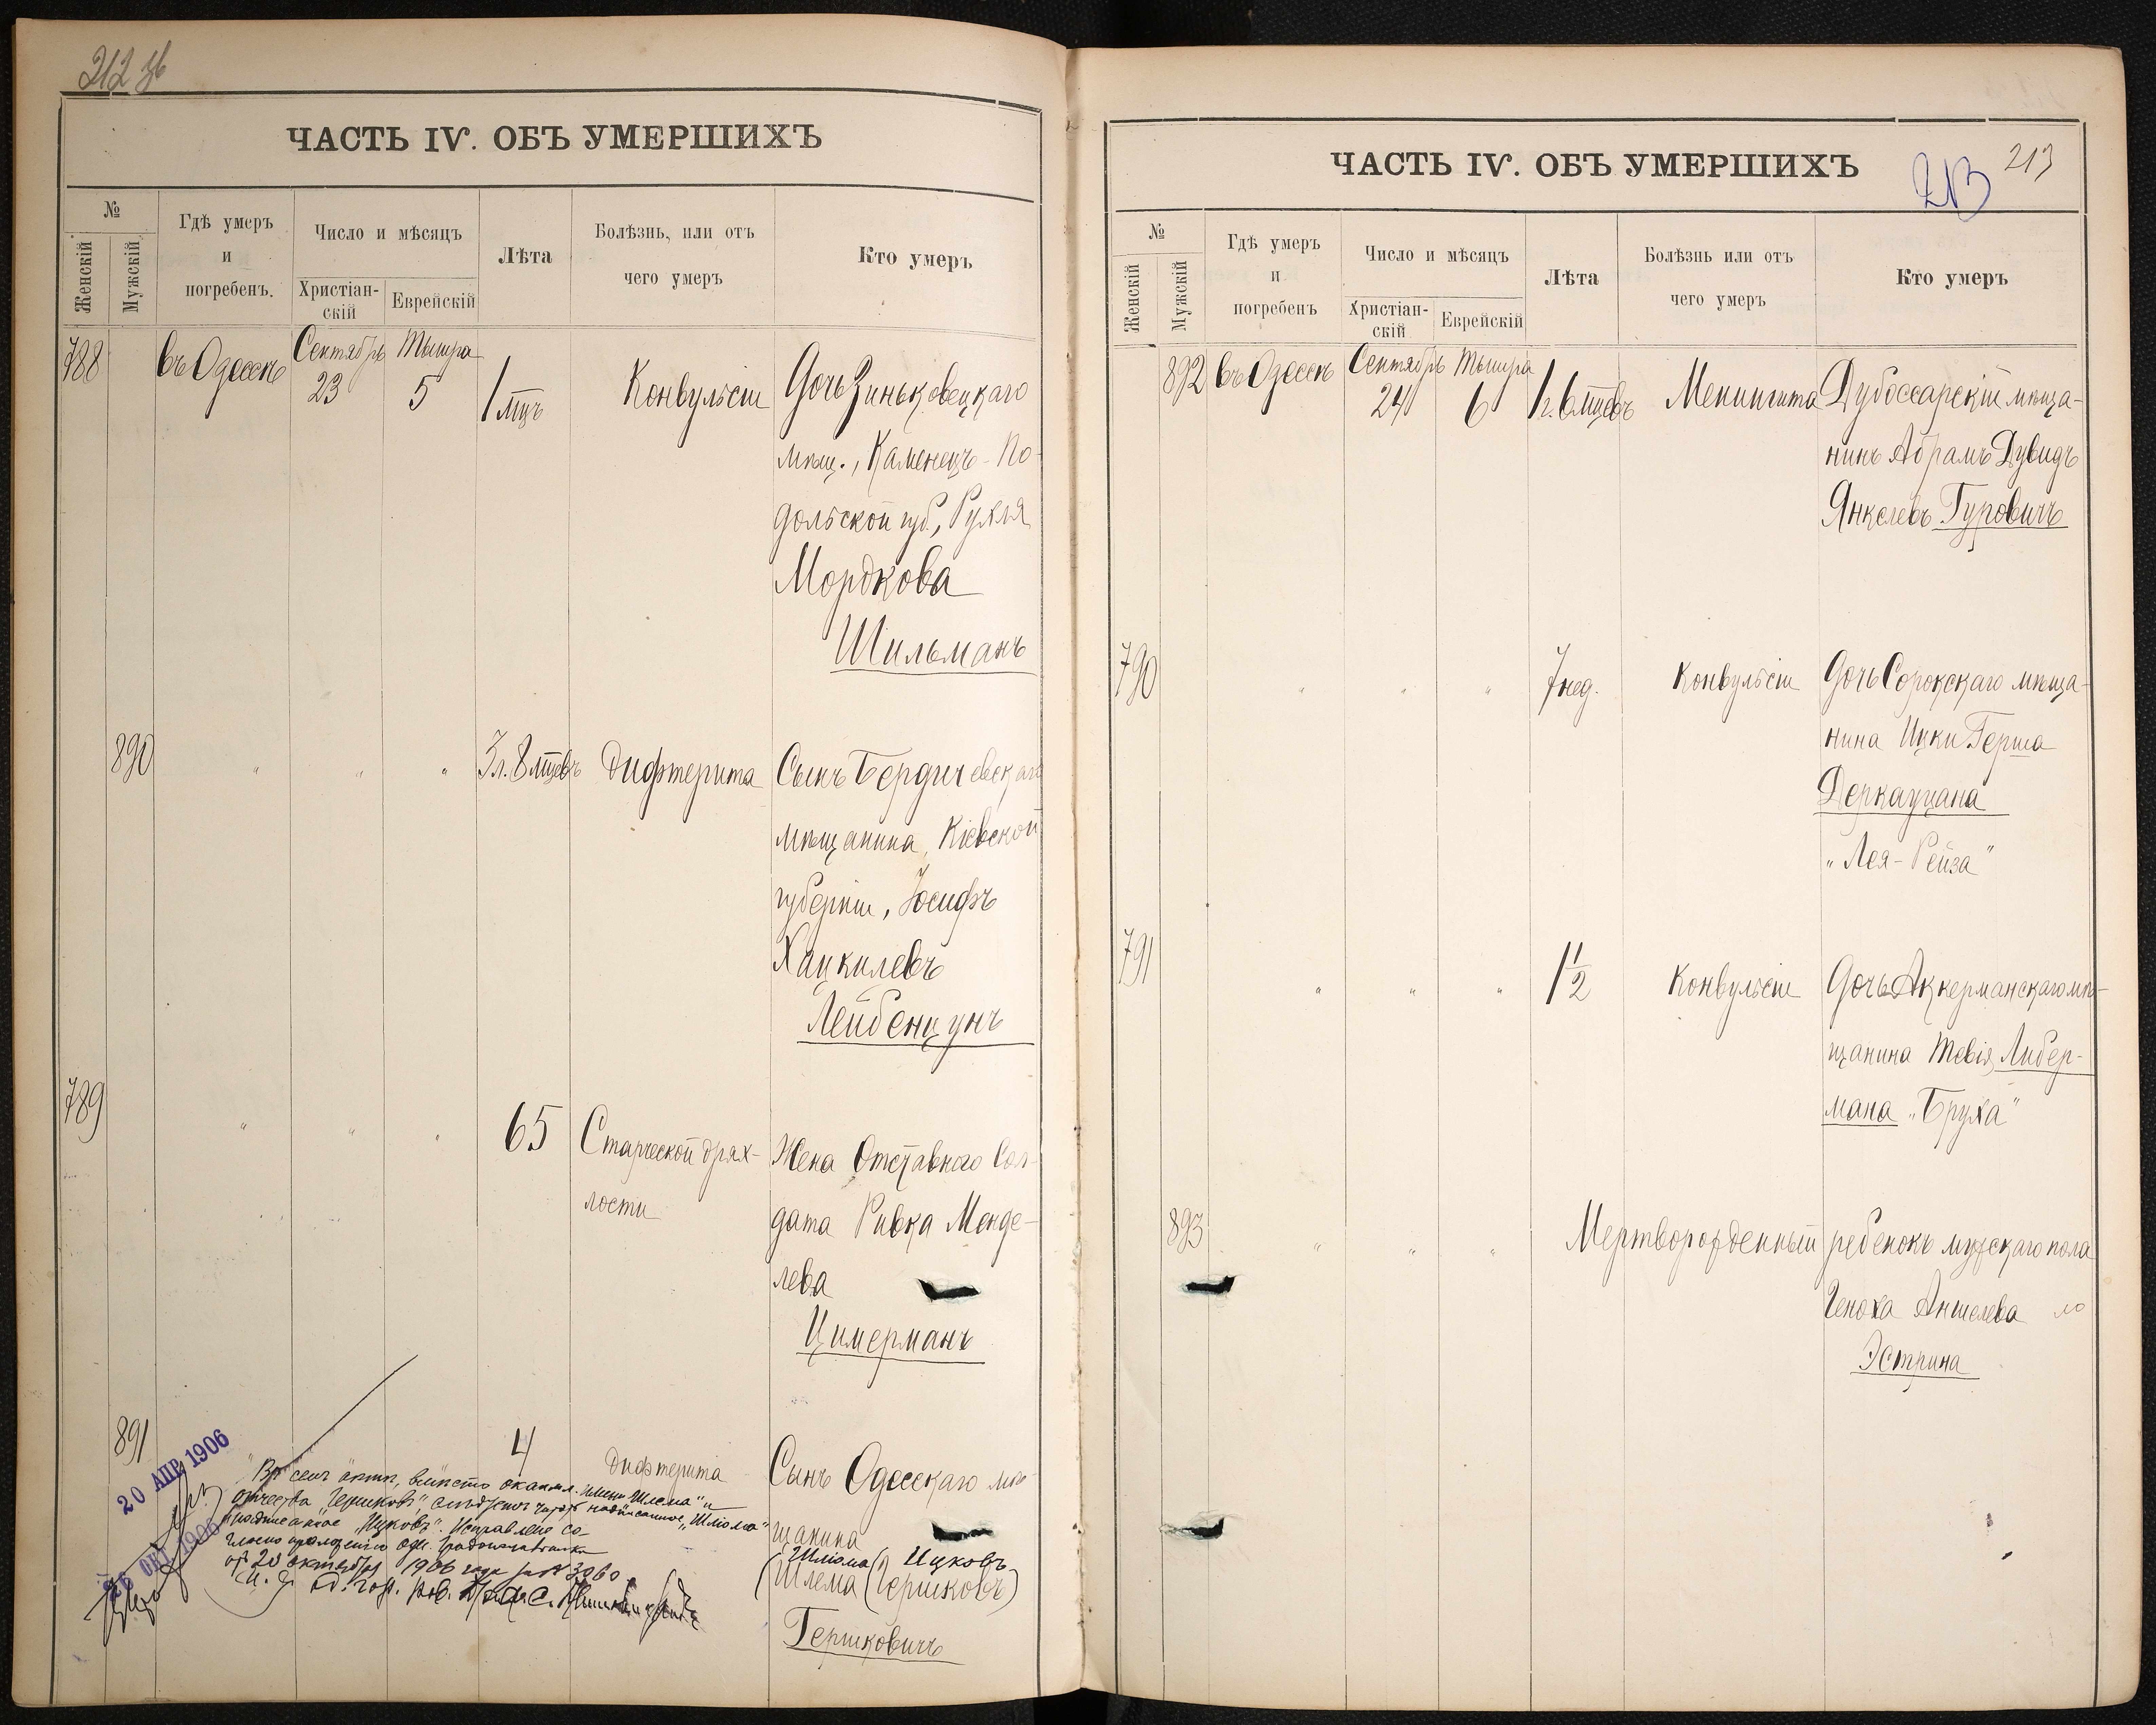 212 об
ЧАСТЬ IV. ОБЪ УМЕРШИХЪ
№
Женскій
Мужскій
Гдѣ умеръ
и
погребенъ.
Число и мѣсяцъ
Христіан-
скій
Еврейскій
Лѣта
Болѣзнь, или отъ
чего умеръ
Кто умеръ
788 въ Одессѣ Сентябрь 23 Тышра 5 1 мцъ Конвульсіи Дочь Зиньковецкаго
мѣщ., Каменецъ-По-
дольской губ., Рухля
Мордкова
Шильманъ
890 " " " 3 г. 8 мцевъ Дифтерита Сынъ Бердичевскаго
мѣщанина, Кіевской
губерніи, Іосифъ
Хацкилевъ
Лейбенцунъ
789 " " " 65 Старческой дрях- Жена Отставного Сол-
лости
дата Ривка Менде-
лева
Цимерманъ
891 4 Дифтерита Сынъ Одесскаго мѣ-
щанина
Шліома Ицковъ
(Шлема (Гершковъ)
Гершковичъ
20 АПР 1906
26 ОКТ 1906
"Въ семъ актѣ, вмѣсто имени "Шлема" и
отчества "Гершковъ", слѣдуетъ надписанное "Шліома"
надписанное "Ицковъ". Исправлено со-
гласно Од. Градоначальника
отъ 20 октября 1906 года за № 3060.
И. д. Од. гор. рав.
ЧАСТЬ IV. ОБЪ УМЕРШИХЪ
213
213
№
Женскій
Мужскій
Гдѣ умеръ
и
погребенъ
Число и мѣсяцъ
Христіан-
скій
Еврейскій
Лѣта
Болѣзнь или отъ
чего умеръ
Кто умеръ
892 въ Одессѣ Сентябрь 24 Тышра 6 1 г. 6 мцевъ Менингита Дубоссарскій мѣща-
нинъ Абрамъ Дувидъ
Янкелевъ Гуровичъ
790 " " " 7 нед. Конвульсіи Дочь Сорокскаго мѣща-
нина Ицки Герша
Деркауцана
"Лея-Рейза"
791 " " " 1 1/2 Конвульсіи Дочь Аккерманскаго мѣ-
щанина Тевія Либер-
мана "Бруха"
893 " " " Мертворожденный ребенокъ мужскаго пола
Геноха Аншелева
Эстрина